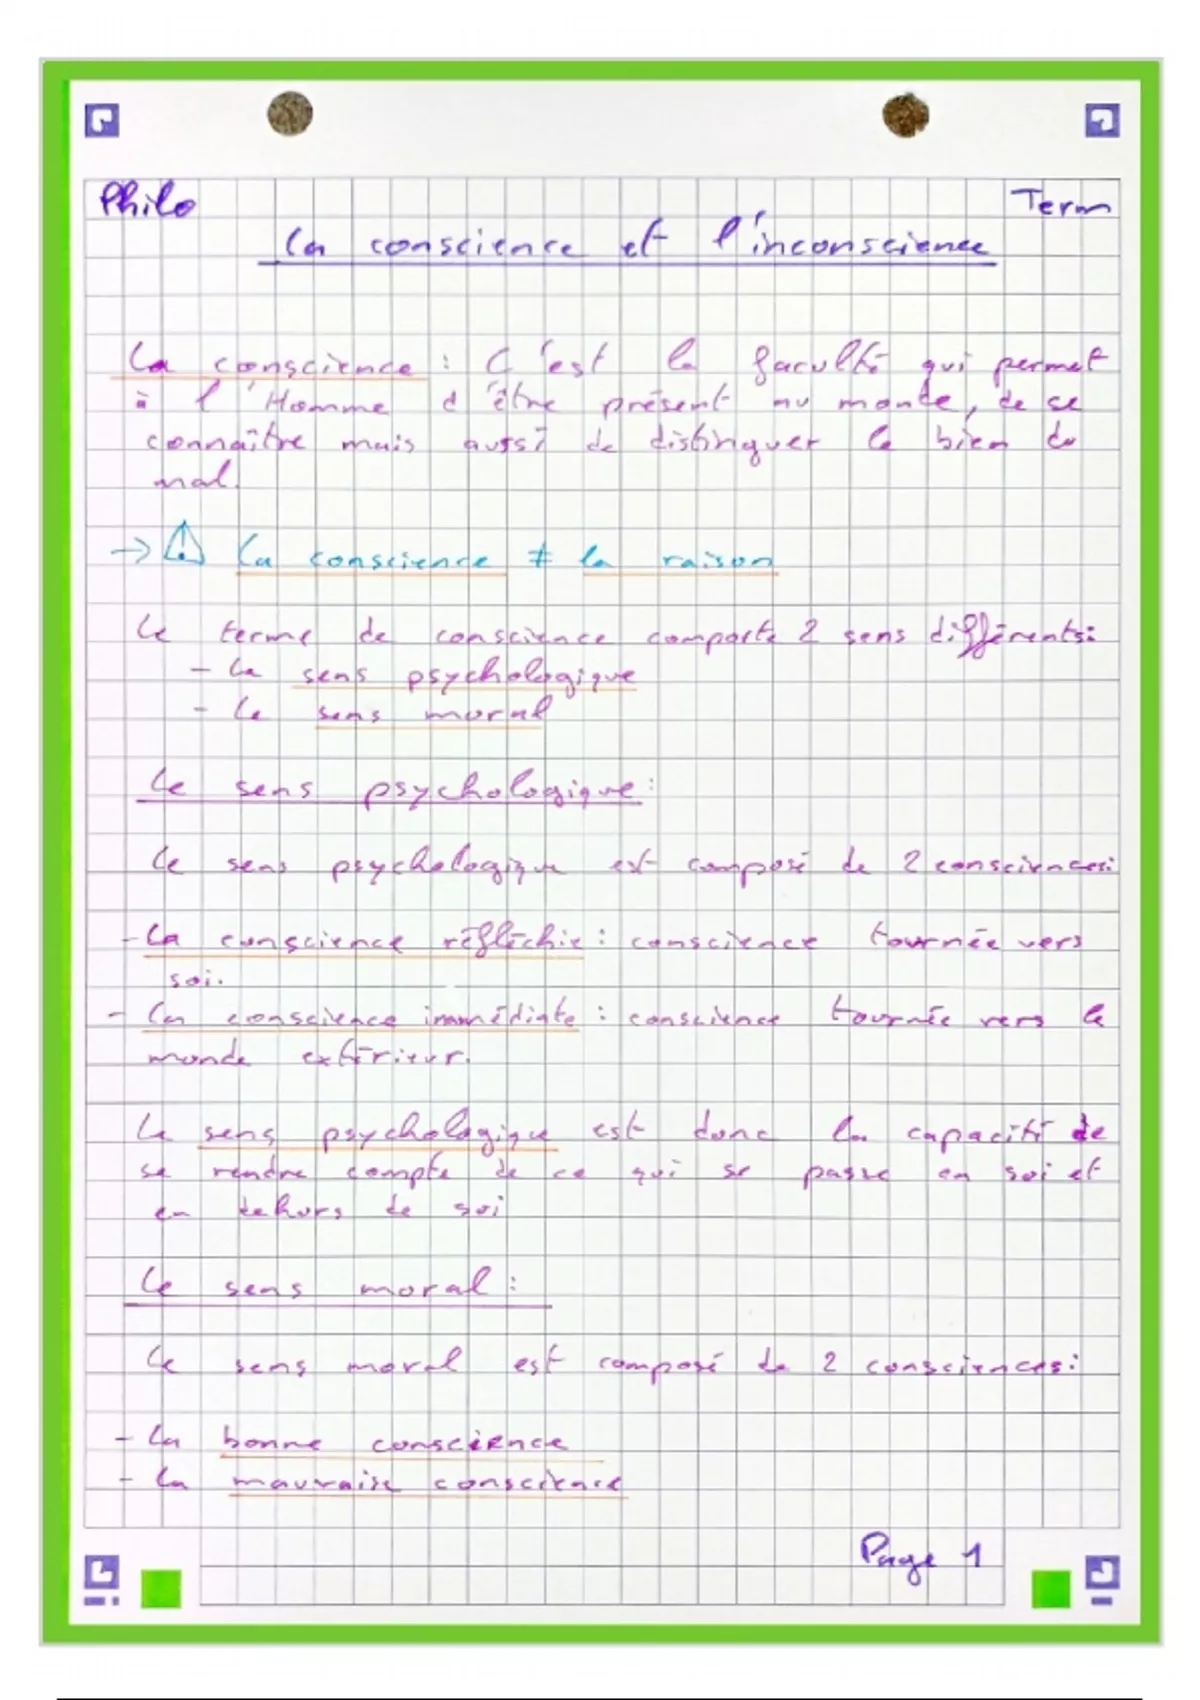 Philo
Term
La conscience et l'inconscience
La conscience : C'est la faculté qui permet
à l'Homme d'être présent au monde, de se
connaître mais aussi de distinguer le bien du
mal.
→ ⚠ La conscience ≠ la raison
Le terme de conscience comporte 2 sens différents:
- Le sens psychologique
- Le sens moral
Le sens psychologique :
Le sens psychologique est composé de 2 consciences:
- La conscience réfléchie : conscience tournée vers
soi.
- La conscience immédiate : conscience tournée vers le
monde extérieur.
Le sens psychologique est donc la capacité de
se rendre compte de ce qui se passe en soi et
en dehors de soi
Le sens moral :
Le sens moral est composé de 2 consciences:
- La bonne conscience
- La mauvaise conscience
Page 1